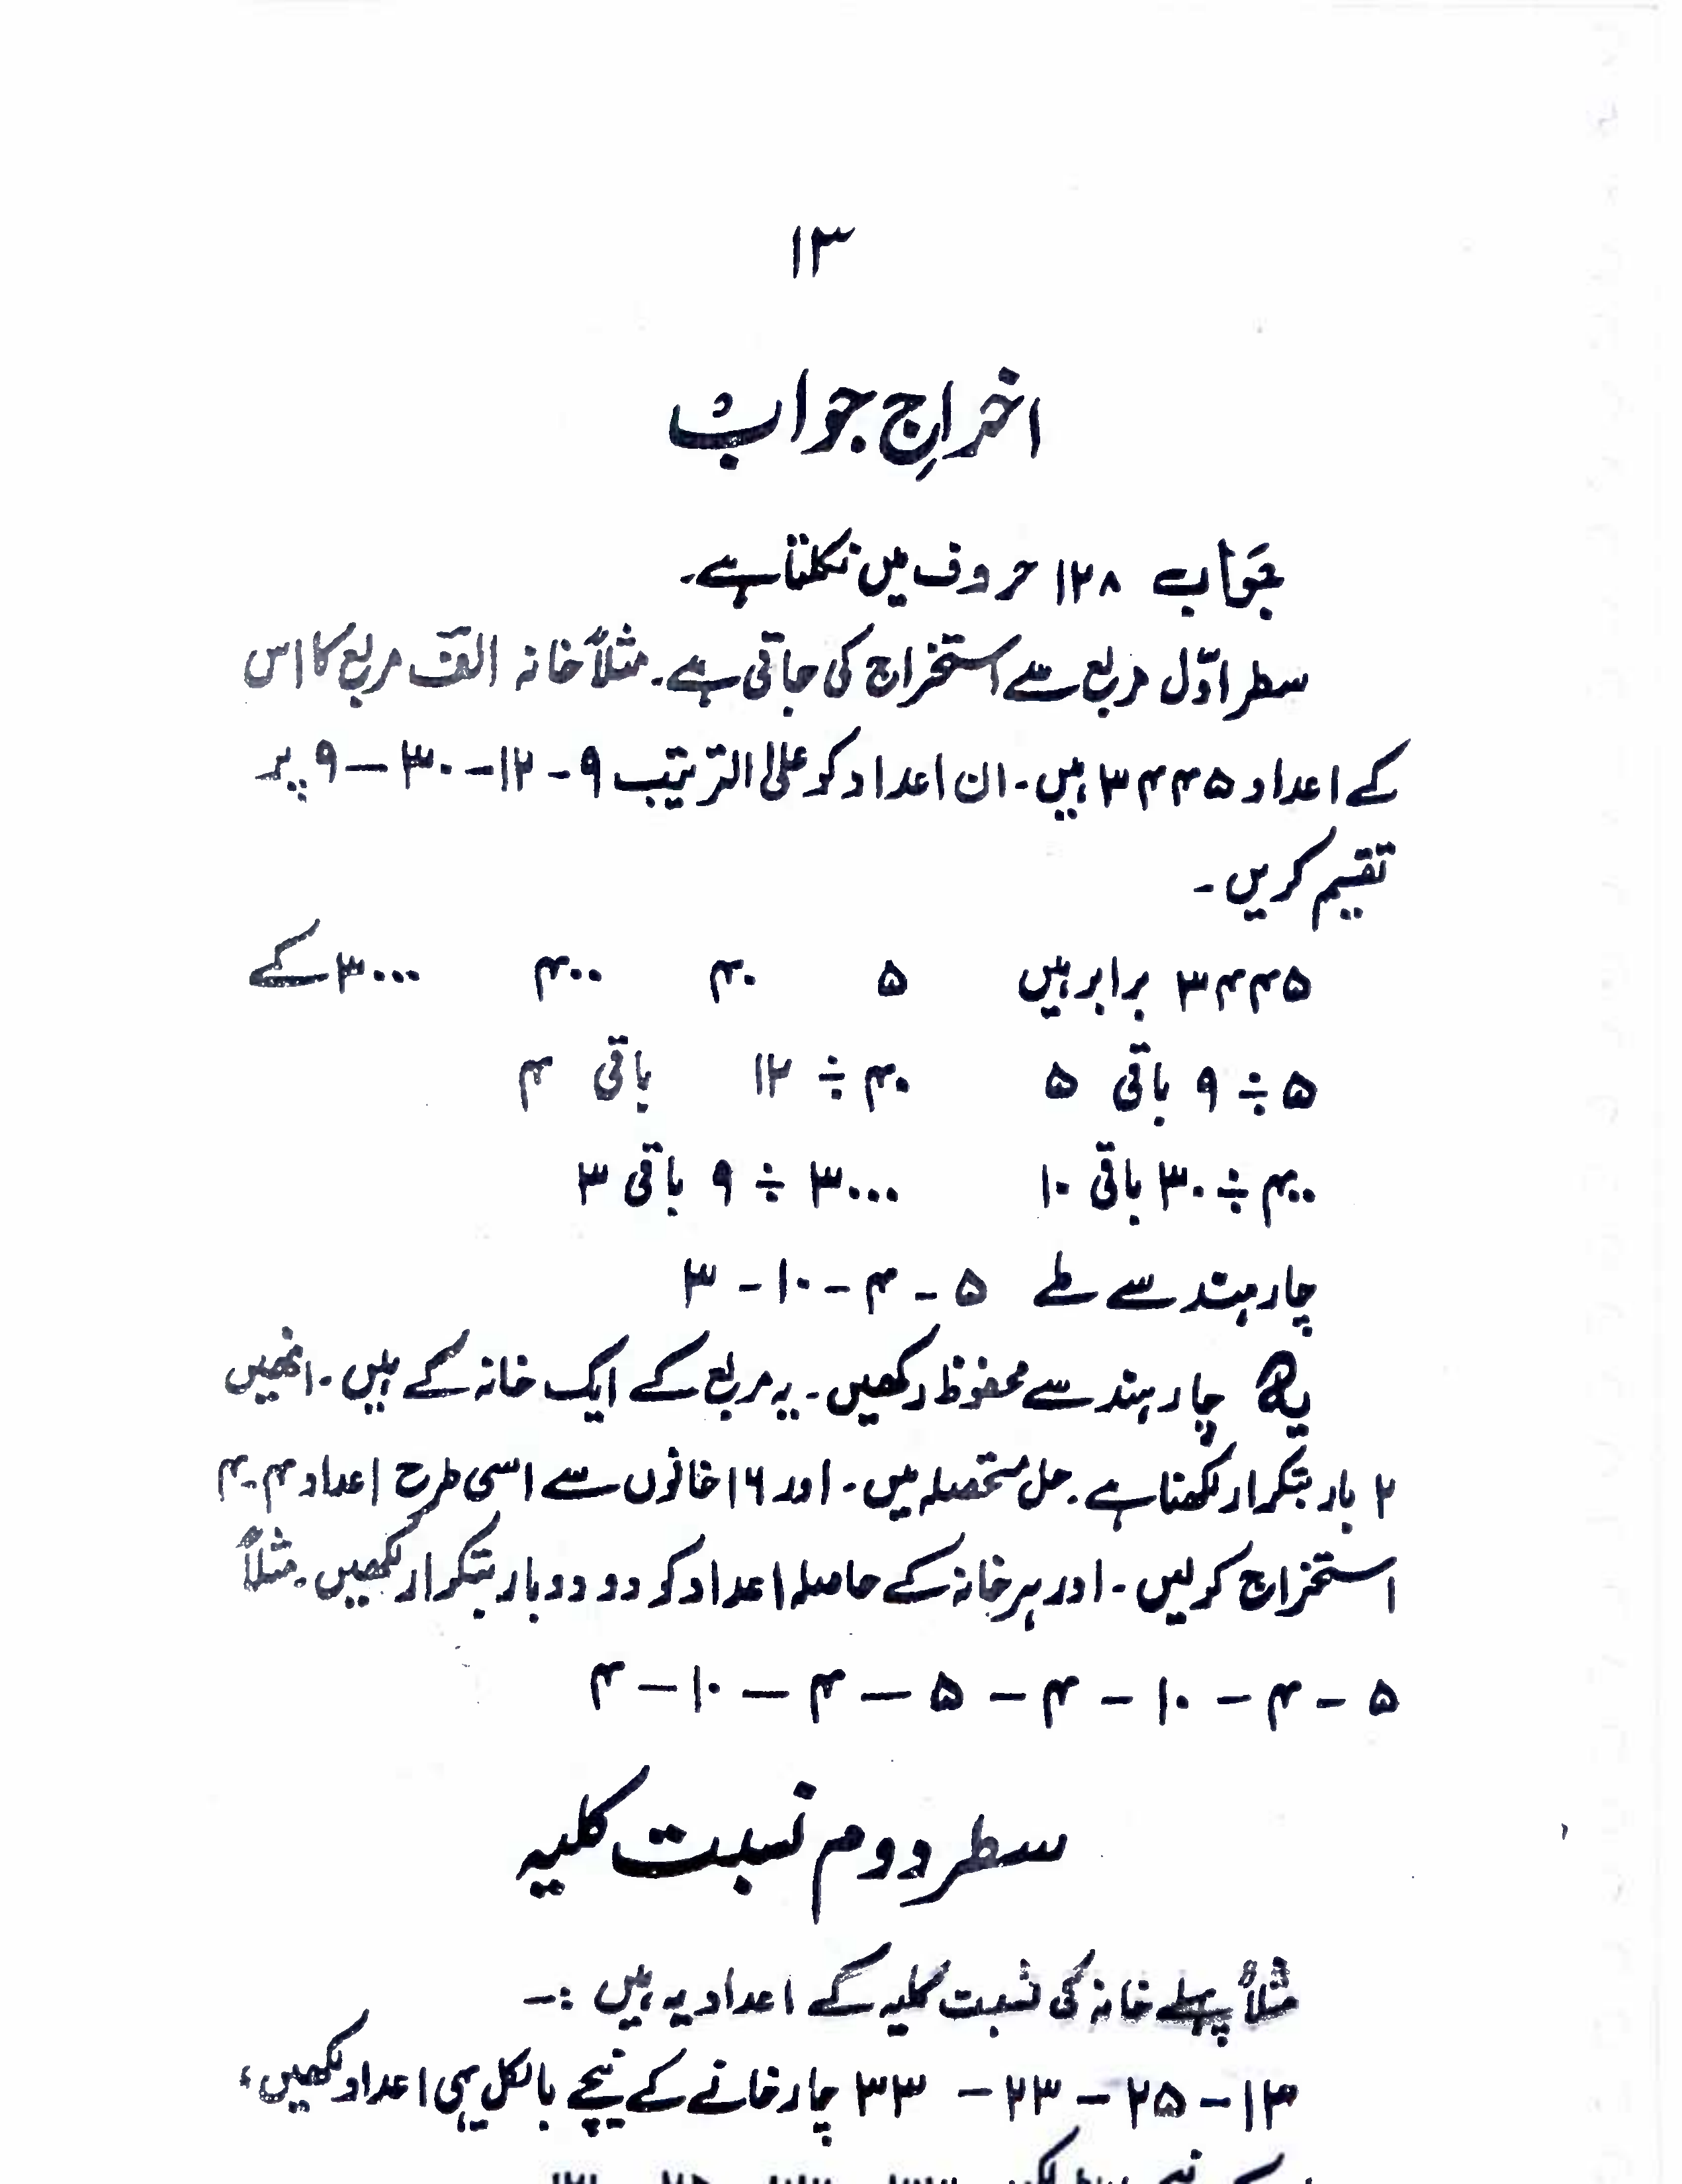 ۱۳
اخراجِ جواب
جواب ۱۲۸ حروف میں نکلتا ہے۔
سطر اوّل مربع سے استخراج کی جاتی ہے۔ مثلاً خانہ الف مربع کا اس
کے اعداد ۳۴۴۵ ہیں۔ ان اعداد کو علی الترتیب ۹ - ۱۲ - ۳۰ - ۹ پر
تقسیم کریں۔
۳۴۴۵ برابر ہیں ۵ ۴۰ ۴۰۰ ۳۰۰۰ کے
۵ ÷ ۹ باقی ۵ ۴۰ ÷ ۱۲ باقی ۴
۴۰۰ ÷ ۳۰ باقی ۱۰ ۳۰۰۰ ÷ ۹ باقی ۳
چار ہندسے ملے ۵ - ۴ - ۱۰ - ۳
یہ چار ہندسے محفوظ رکھیں۔ یہ مربع کے ایک خانہ کے ہیں۔ انھیں
۲ بار بتکرار لکھنا ہے۔ حل مستحصلہ میں۔ اور ۱۶ خانوں سے اسی طرح اعداد ۴-۴
استخراج کرلیں۔ اور ہر خانہ کے حاصلہ اعداد کو دو دو بار بتکرار لکھیں۔ مثلاً
۵ - ۴ - ۱۰ - ۴ - ۵ - ۴ - ۱۰ - ۴
سطر دوم نسبت کلیہ
مثلاً پہلے خانہ کی نسبت کلیہ کے اعداد یہ ہیں :-
۱۳ - ۲۵ - ۲۳ - ۳۳ چار خانے کے نیچے بالکل یہی اعداد لکھیں،